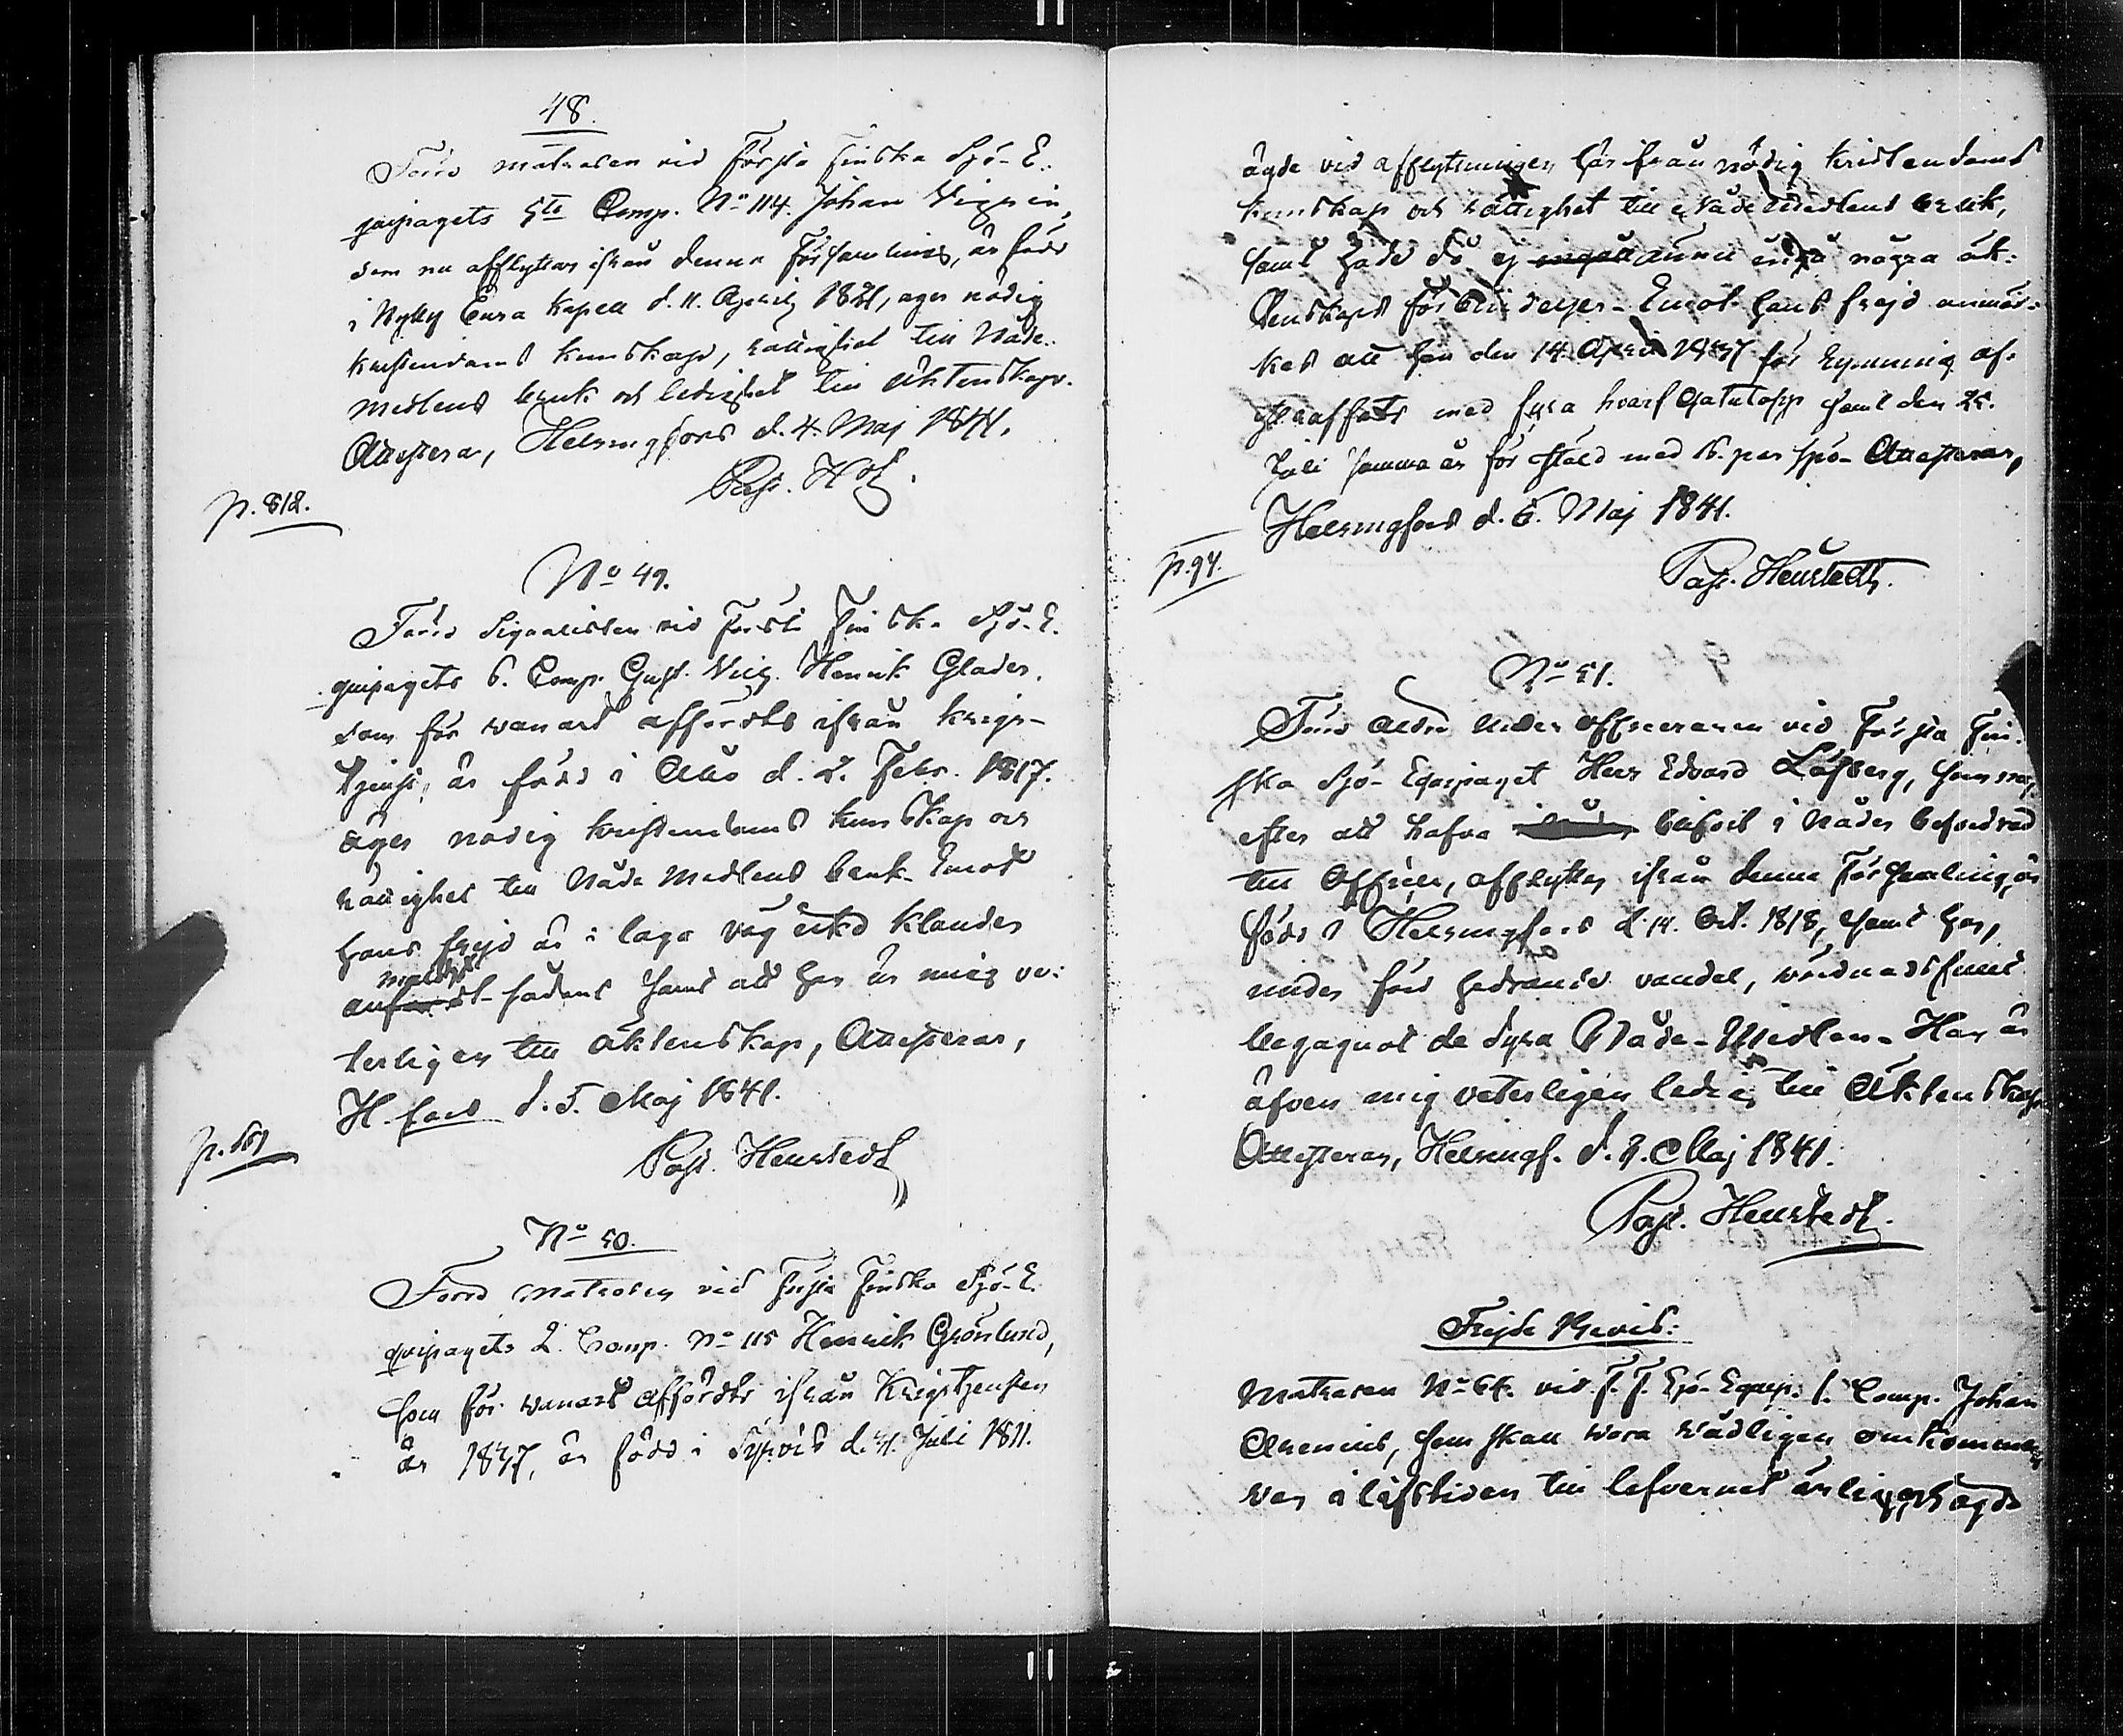 48.
Förre matrosen vid Första Finska Sjö-E-
quipagets 5te Comp. No 114. Johan
som nu afflyttar ifrån denna Församling, är född
i Eura Kapell d. 11. April 1821, eger nödig
kristendoms kunskap, rättighet till Nåde-
medlens bruk och ledighet till äktenskap.
Attestera, Helsingfors d. 4. Maj 1841.
Past. H
p. 812.
No 49.
Förre Signalisten vid Första Finska Sjö-E-
quipagets 6. Comp. Gust. Henrik Glader,
som för vanart affördts ifrån krigs-
tjenst, är född i Åbo d. 2. Febr. 1817.
äger nödig kristendoms kunskap och
rättighet till Nåde Medlens bruk. Emot
hans frejd är i laga väg intet klander
samt att han är mig ve-
terligen till äktenskap, Attesteras,
H.fors d. 5. Maj 1841.
Past. Heurstedt
No 50.
Förre matrosen vid Första Finska Sjö-E-
quipagets 2. Comp. No 115 Henrik Grönlund,
som för vanart affördts ifrån Krigstjensten
år 1837, är född i d. 31. Juli 1811.
ägde vid afflyttningen här ifrån nödig kristendoms
kunskap och rättighet till Nådemedlens bruk,
samt hade då ej ännu ingå några äk-
tenskaps förbindelser. Emot hans frejd anmär-
kes att han den 14. April 1837 för rymning af-
straffats med fyra hvarf Gatulopp samt den 25.
Juli samma år för stöld med 16. par spö. Attesteras,
Helsingfors d. 6. Maj 1841.
p. 94.
Past. Heurstedt.
No 51.
Förre äldre Under officeraren vid Första Fin-
ska Sjö-Equipaget Herr Edvard Löfberg, som nu,
efter att hafva blifvit i Nåder befordrad
till Officer, afflyttar ifrån denna Församling, är
född i Helsingfors d. 14. Oct. 1818, samt har,
under fört hedrande vandel, vördnadsfullt
begagnat de dyra Nåde-Medlen. Han är
äfven mig veterligen ledig till Äktenskap
Attesteras, Helsingf. d. 8. Maj 1841.
Past. Heurstedt.
Frejde Bevis:
Matrosen No 64. vid F. F. Sjö-Equip. 1. Comp. Johan
Arenius, som skall vara vådligen omkommen
var i lifstiden till lefvernet ärlig, och ägde